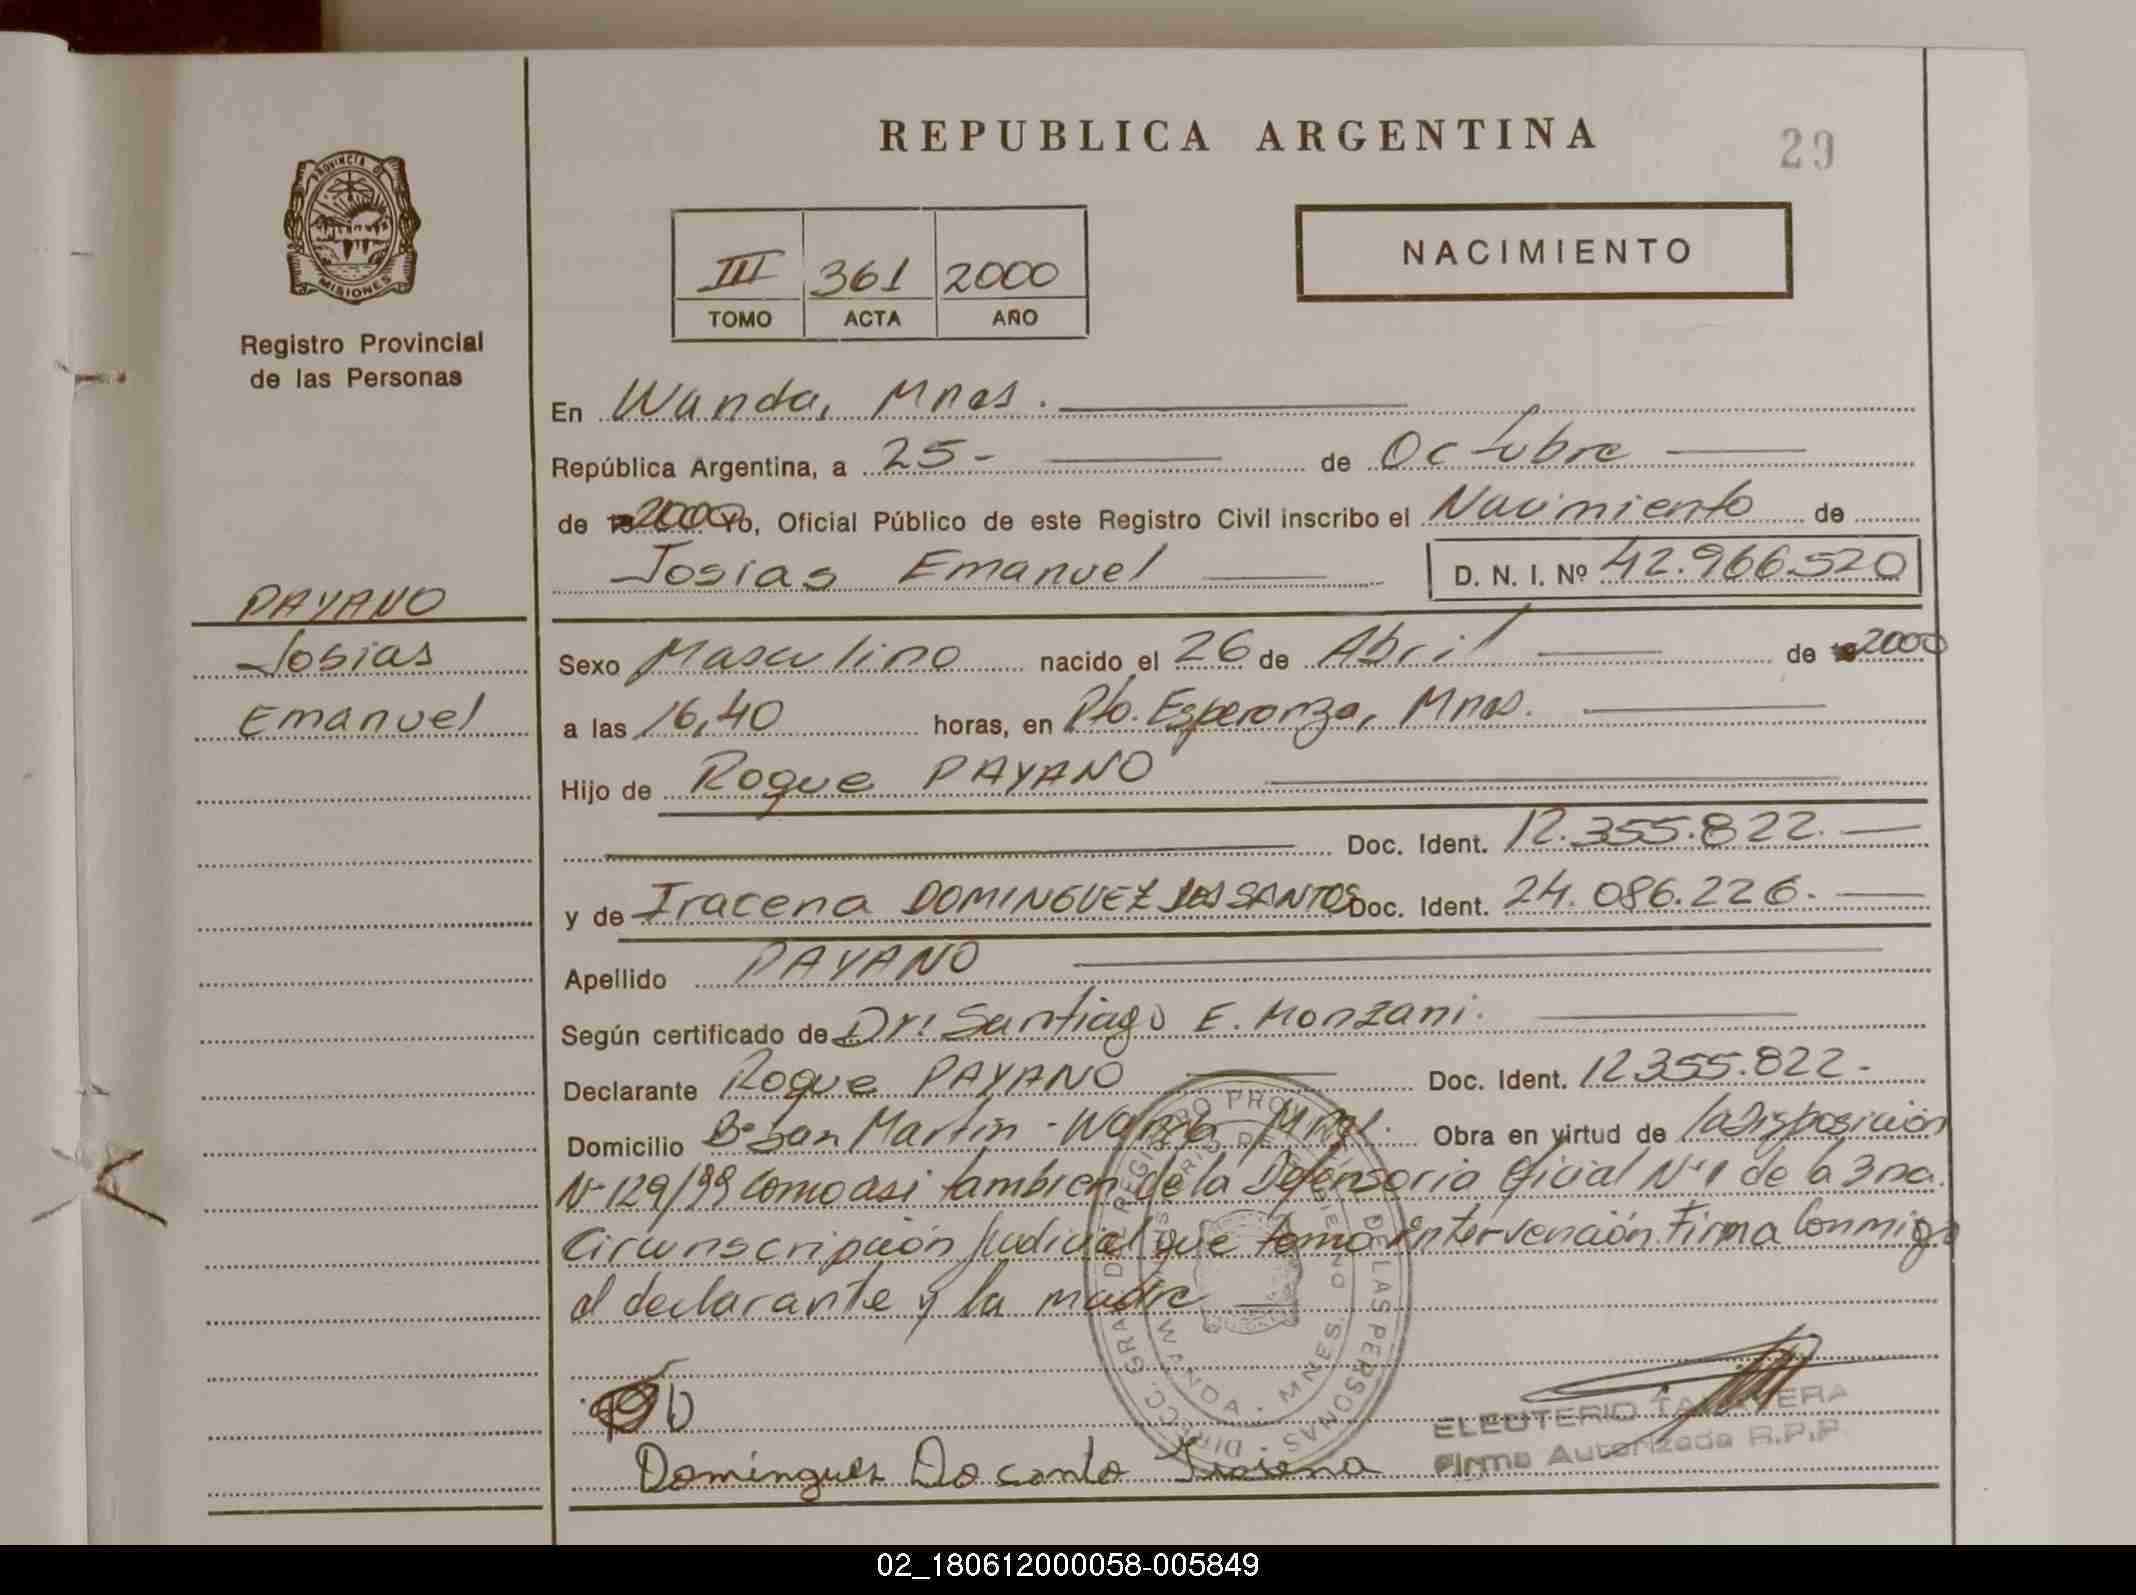 REPUBLICA ARGENTINA
29
PROVINCIA DE
MISIONES
Registro Provincial
de las Personas
III 361 2000
TOMO ACTA AÑO
NACIMIENTO
En Wanda, Mnes.
República Argentina, a 25- de Octubre
de 2000 Yo, Oficial Público de este Registro Civil inscribo el Nacimiento de
Josias Emanuel D. N. I. Nº 42.966.520
PAYANO
Josias
Emanuel
Sexo Masculino nacido el 26 de Abril de 2000
a las 16,40 horas, en Pto. Esperanza, Mnes.
Hijo de Roque PAYANO
Doc. Ident. 12.355.822.
y de Iracena DOMINGUEZ DOS SANTOS Doc. Ident. 24.086.226.
Apellido PAYANO
Según certificado de Dr. Santiago E. Monzani.
Declarante Roque PAYANO Doc. Ident. 12.355.822-
Domicilio Bº San Martin - Wanda Mnes. Obra en virtud de la Disposición
Nº 129/99 Como asi tambien de la Defensoria Oficial Nº 1 de la 3ra.
Circunscripción Judicial que tomo intervención. Firma Conmigo
el declarante y la madre
DIRECC. GRAL DE REGISTRO PROV. DE LAS PERSONAS
WANDA - MNES.
ELEUTERIO TALAVERA
Firma Autorizada R.P.P.
Domingues Do santo Irasena
02_180612000058-005849